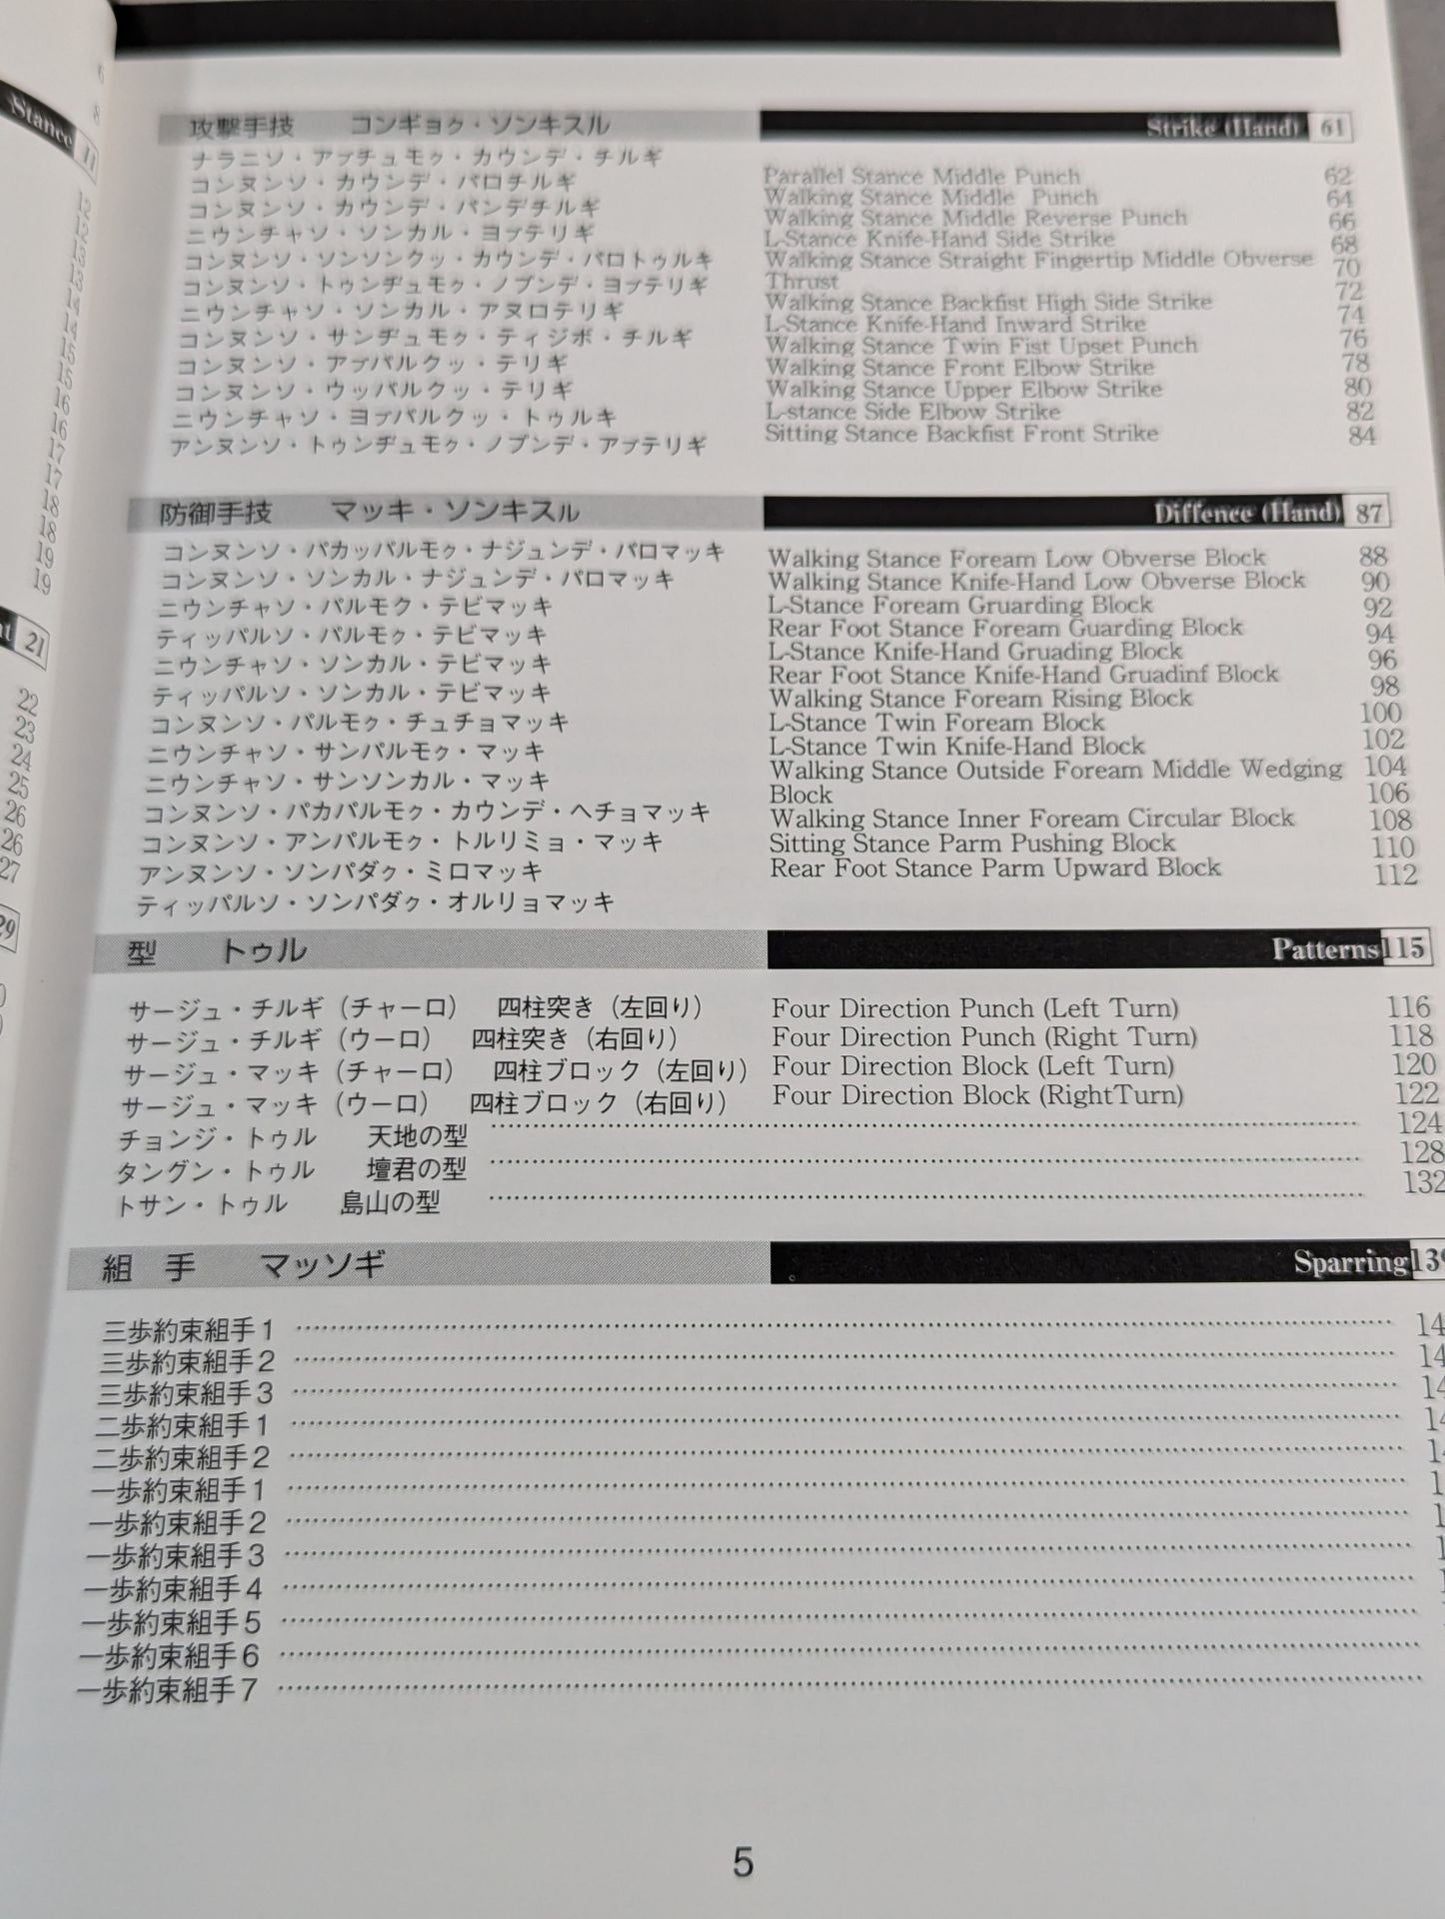 Stance 11
攻撃手技 コンギョㇰ・ソンキスル Strike (Hand) 61
ナラニソ・アㇷ゚チュモㇰ・カウンデ・チルギ
コンヌンソ・カウンデ・パロチルギ
コンヌンソ・カウンデ・パンデチルギ
ニウンチャソ・ソンカル・ヨㇷ゚テリギ
コンヌンソ・ソンソンクッ・カウンデ・パロトゥルキ
コンヌンソ・トゥンヂュモㇰ・ノプンデ・ヨㇷ゚テリギ
ニウンチャソ・ソンカル・アヌロテリギ
コンヌンソ・サンヂュモㇰ・ティジボ・チルギ
コンヌンソ・アㇷ゚パルクッ・テリギ
コンヌンソ・ウッパルクッ・テリギ
ニウンチャソ・ヨㇷ゚パルクッ・トゥルキ
アンヌンソ・トゥンヂュモㇰ・ノプンデ・アㇷ゚テリギ
Parallel Stance Middle Punch 62
Walking Stance Middle Punch 64
Walking Stance Middle Reverse Punch 66
L-Stance Knife-Hand Side Strike 68
Walking Stance Straight Fingertip Middle Obverse 70
Thrust 72
Walking Stance Backfist High Side Strike 74
L-Stance Knife-Hand Inward Strike 76
Walking Stance Twin Fist Upset Punch 78
Walking Stance Front Elbow Strike 80
Walking Stance Upper Elbow Strike 82
L-stance Side Elbow Strike 84
Sitting Stance Backfist Front Strike
防御手技 マッキ・ソンキスル Diffence (Hand) 87
コンヌンソ・パカッパルモㇰ・ナジュンデ・パロマッキ
コンヌンソ・ソンカル・ナジュンデ・パロマッキ
ニウンチャソ・パルモク・テビマッキ
ティッパルソ・パルモㇰ・テビマッキ
ニウンチャソ・ソンカル・テビマッキ
ティッパルソ・ソンカル・テビマッキ
コンヌンソ・パルモㇰ・チュチョマッキ
ニウンチャソ・サンパルモㇰ・マッキ
ニウンチャソ・サンソンカル・マッキ
コンヌンソ・パカパルモㇰ・カウンデ・ヘチョマッキ
コンヌンソ・アンパルモㇰ・トルリミョ・マッキ
アンヌンソ・ソンパダㇰ・ミロマッキ
ティッパルソ・ソンパダㇰ・オルリョマッキ
Walking Stance Foream Low Obverse Block 88
Walking Stance Knife-Hand Low Obverse Block 90
L-Stance Foream Gruarding Block 92
Rear Foot Stance Foream Guarding Block 94
L-Stance Knife-Hand Gruading Block 96
Rear Foot Stance Knife-Hand Gruadinf Block 98
Walking Stance Foream Rising Block 100
L-Stance Twin Foream Block 102
L-Stance Twin Knife-Hand Block 104
Walking Stance Outside Foream Middle Wedging 106
Block 108
Walking Stance Inner Foream Circular Block 110
Sitting Stance Parm Pushing Block 112
Rear Foot Stance Parm Upward Block
型 トゥル Patterns 115
サージュ・チルギ（チャーロ） 四柱突き（左回り） Four Direction Punch (Left Turn) 116
サージュ・チルギ（ウーロ） 四柱突き（右回り） Four Direction Punch (Right Turn) 118
サージュ・マッキ（チャーロ） 四柱ブロック（左回り） Four Direction Block (Left Turn) 120
サージュ・マッキ（ウーロ） 四柱ブロック（右回り） Four Direction Block (RightTurn) 122
チョンジ・トゥル 天地の型 124
タングン・トゥル 壇君の型 128
トサン・トゥル 島山の型 132
組 手 マッソギ Sparring 139
三歩約束組手1
三歩約束組手2
三歩約束組手3
二歩約束組手1
二歩約束組手2
一歩約束組手1
一歩約束組手2
一歩約束組手3
一歩約束組手4
一歩約束組手5
一歩約束組手6
一歩約束組手7
5
21
22
23
24
25
26
26
27
29